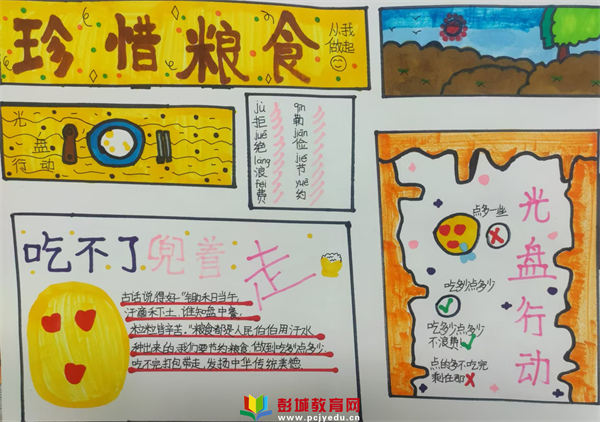 珍惜粮食
从我
做起
光
盘
行动
jù
拒
jué
绝
làng
浪
fèi
费
qín
勤
jiǎn
俭
jié
节
yuē
约
吃不了兜着走
古话说得好"锄禾日当午,
汗滴禾下土,谁知盘中餐,
粒粒皆辛苦。"粮食都是人民伯伯用汗水
种出来的,我们要节约粮食,做到吃多少点多少
吃不完打包带走,发扬中华传统美德
光盘行动
点多一些
吃多少点多少
吃多少点多少
不浪费
点的多不吃完
剩在那
彭城教育网
www.pcjyedu.cn